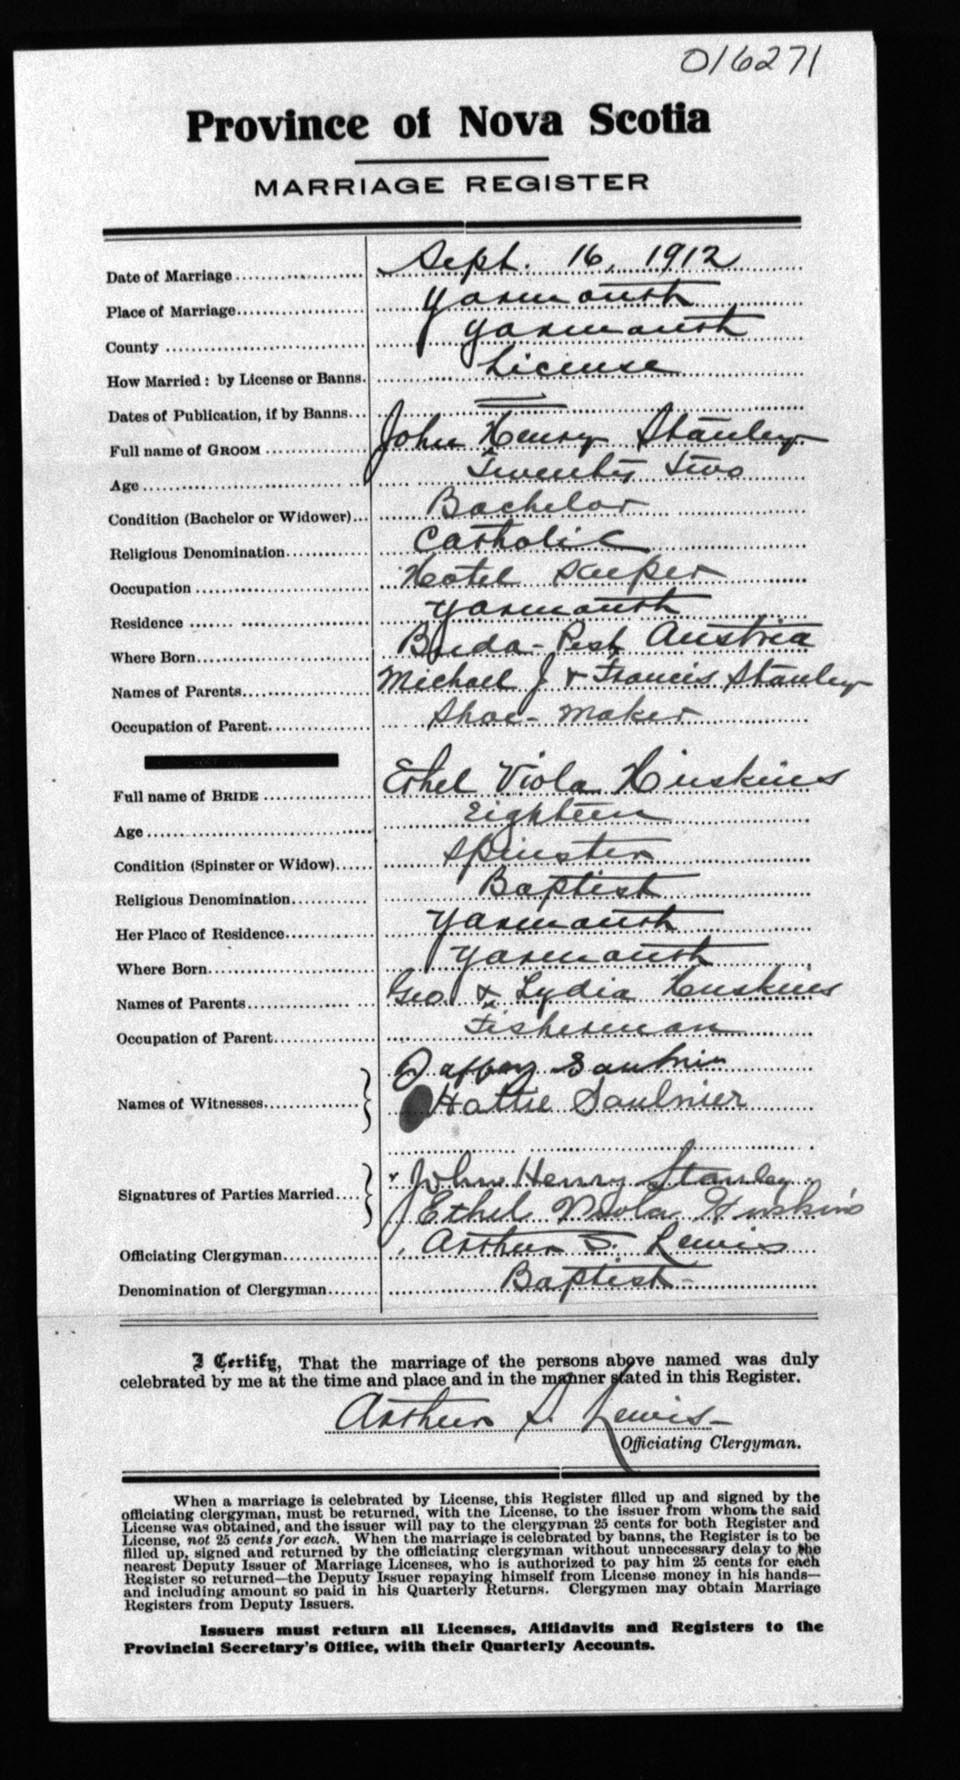 016271
Province of Nova Scotia
MARRIAGE REGISTER
Date of Marriage Sept. 16, 1912
Place of Marriage Yarmouth
County Yarmouth
How Married: by License or Banns. License
Dates of Publication, if by Banns
Full name of GROOM John Henry Stanley
Age Twenty Two
Condition (Bachelor or Widower) Bachelor
Religious Denomination Catholic
Occupation Hotel Keeper
Residence Yarmouth
Where Born Buda-Pest Austria
Names of Parents Michael J & Francis Stanley
Occupation of Parent Shoe-Maker
Full name of BRIDE Ethel Viola Huskins
Age Eighteen
Condition (Spinster or Widow) Spinster
Religious Denomination Baptist
Her Place of Residence Yarmouth
Where Born Yarmouth
Names of Parents Geo & Lydia Huskins
Occupation of Parent Fisherman
Saulnier
Names of Witnesses Hattie Saulnier
John Henry Stanley
Signatures of Parties Married Ethel Viola Huskins
Officiating Clergyman Arthur S. Lewis
Denomination of Clergyman Baptist
I Certify, That the marriage of the persons above named was duly
celebrated by me at the time and place and in the manner stated in this Register.
Arthur S. Lewis
Officiating Clergyman.
When a marriage is celebrated by License, this Register filled up and signed by the
officiating clergyman, must be returned, with the License, to the issuer from whom the said
License was obtained, and the issuer will pay to the clergyman 25 cents for both Register and
License, not 25 cents for each. When the marriage is celebrated by banns, the Register is to be
filled up, signed and returned by the officiating clergyman without unnecessary delay to the
nearest Deputy Issuer of Marriage Licenses, who is authorized to pay him 25 cents for each
Register so returned—the Deputy Issuer repaying himself from License money in his hands—
and including amount so paid in his Quarterly Returns. Clergymen may obtain Marriage
Registers from Deputy Issuers.
Issuers must return all Licenses, Affidavits and Registers to the
Provincial Secretary's Office, with their Quarterly Accounts.